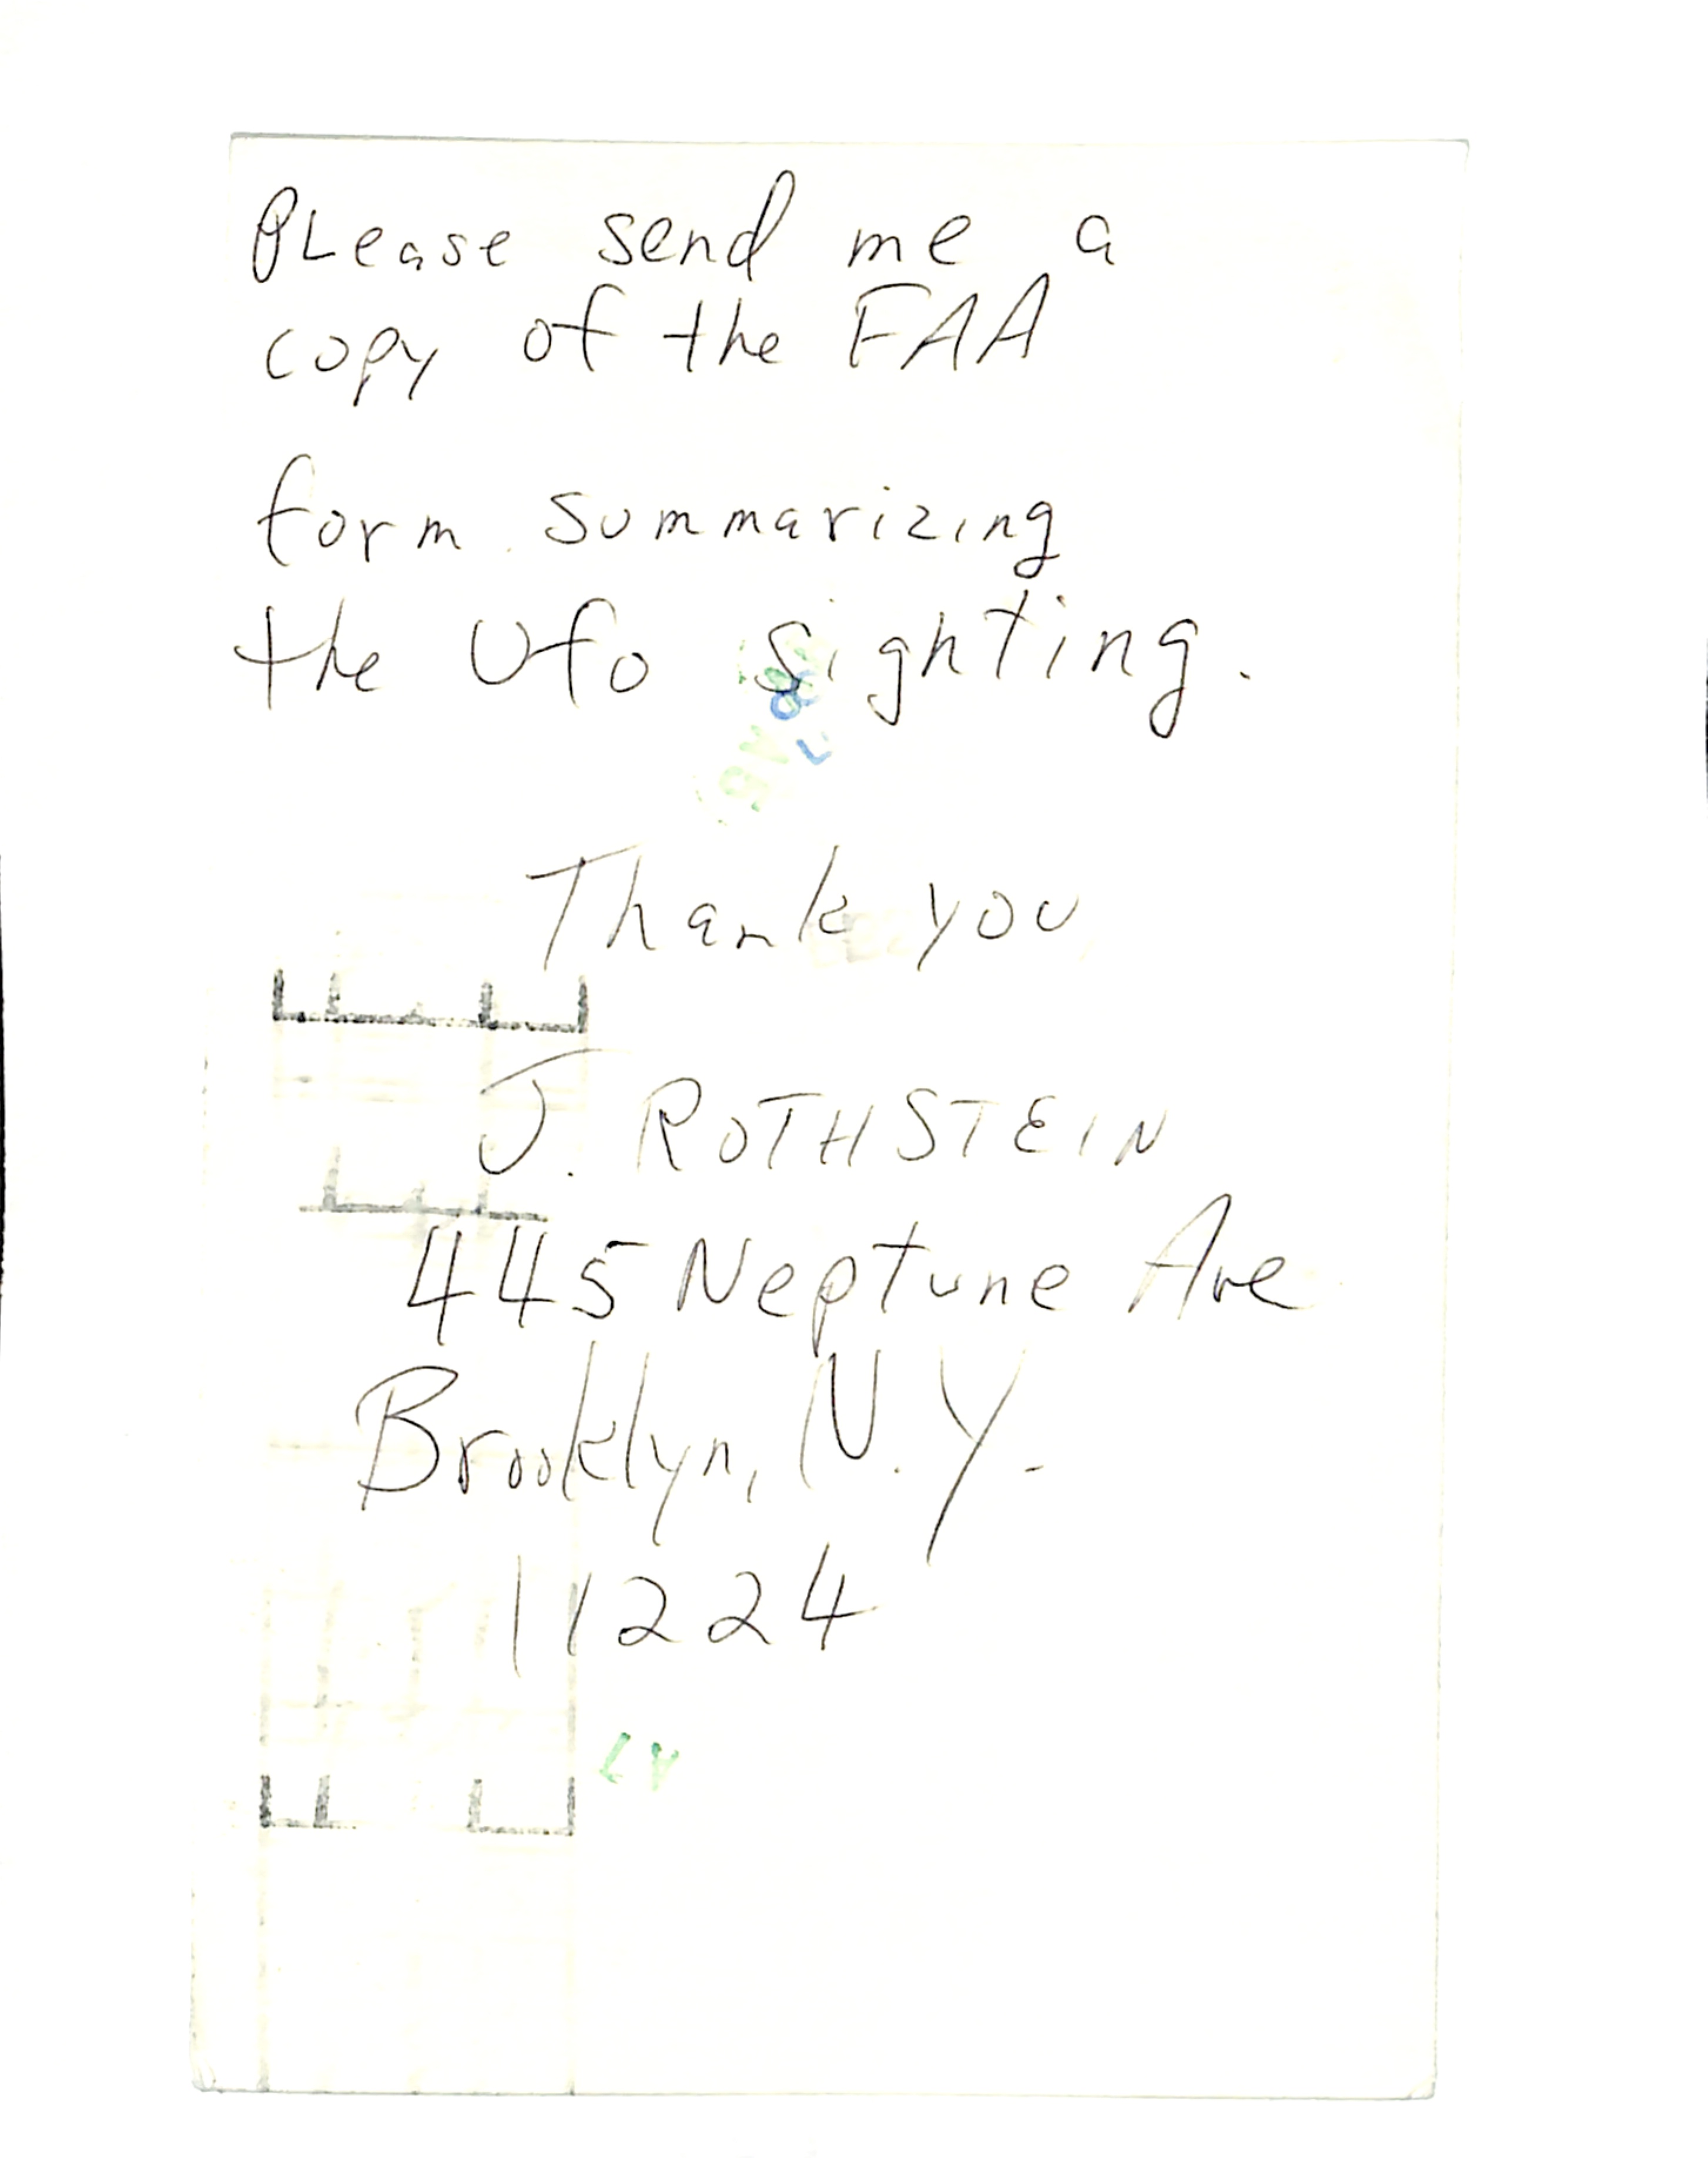 PLease send me a
copy of the FAA
form summarizing
the Ufo sighting.
Thank you
J. ROTHSTEIN
445 Neptune Ave
Brooklyn, N.Y.
11224